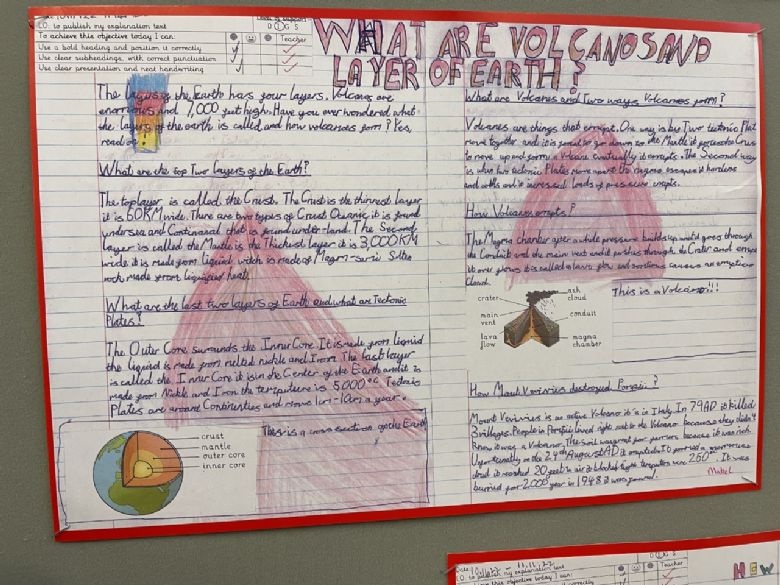 LO: to publish my explanation text
O I G S
To achieve this objective today I can:
Teacher
Use a bold heading and position it correctly
Use clear subheadings, with correct punctuation
Use clear presentation and neat handwriting
WHAT ARE VOLCANOS AND
LAYER OF EARTH?
The layers of the Earth has four layers. Volcanos are
enormous and 7,000 feet high. Have you ever wondered what
the layers of the earth is called and how volcanoes form? Yes,
read on
What are the top Two layers of the Earth?
The top layer is called the Crust. The Crust is the thinnest layer
it is 60KM wide. There are two types of Crust Oceanic it is found
undersea and that is found under-land. The Second
layer is called the Mantle is the Thickest layer it is 3,000KM
wide it is made from liquid witch is made of
rock made from heat.
What are the last two layers of Earth and what are Tectonic
Plates?
The Outer Core surrounds the Inner Core. It is made from liquid
the liquid is made from melted nickle and Iron. The last layer
is called the Inner Core it is in the Center of the Earth and it is
made from Nickle and Iron the is 5,000°C.
Plates are around and move 1cm-10cm a year.
crust
mantle
outer core
inner core
This is a cross section of the Earth
What are Volcanoes and Two ways Volcanoes form?
Volcanoes are things that errupt. One way is by Two tectonic Plat
move together and it is forced to go down to the Mantle it forces the Crus
to move up and forms a Volcano eventually it errupts. The Second way
is when two tectonic Plates move apart the magma escapes it hardens
and loads of pressure errupts.
How Volcanoes errupts?
The Magma Chamber after a while pressure builds up and it goes through
the Conduit and the main vent and it pushes through the Crater and
it over flows it is called a lava flow and causes an
Cloud.
crater
ash cloud
main vent
conduit
lava flow
magma chamber
This is a Volcano!!!
How Mount destroyed ?
Mount is an active Volcano it is in Italy. In 79AD it killed
3 villages. People in lived right next to the Volcano because they didn't
know it was a Volcano. The Soil was great for because it was rich.
on the 24th August AD it errupted. It
cloud it reached 20 feet in air it blocked 250°. It was
burried for 2000 year in 1948 it were
publish my explanation text
O I G S
Teacher
HOW